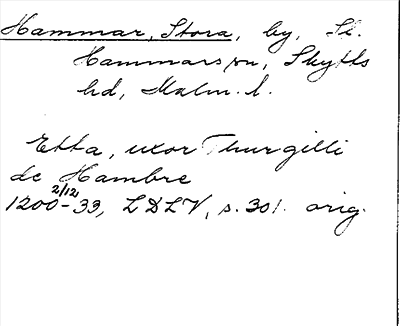 Hammar, Stora, by, St.
Hammars sn, Skytts
hd, Malm. l.
Etta, uxor Thurgilli
de Hambre
2/12
1200-33, LDLV, s. 301. orig.